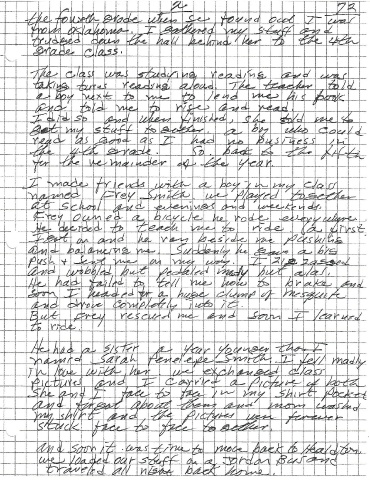 2 72
the fourth grade when se found out I was
from Oklahoma. I gathered my stuff and
trudged down the hall behind her to the 4th
grade class.
The class was studying reading and was
taking turns reading aloud. The teacher told
a boy next to me to lend me his book
and told me to rise and read.
I did so and when finished, she told me to
get my stuff together. a boy who could
read as good as I had no business in
the 4th grade. So, back to the fifth
for the remainder of the year.
I made friends with a boy in my class
named Frey Smith. we played together
at school and evenings and weekends.
Frey owned a bicycle he rode everywhere.
He decided to teach me to ride. (a first
I sat on and he ran beside me pushing
and balancing me. Suddenly he gave a big
push & sent me on my way. I zig zagged
and wobbled but pedaled madly but alas!
He had failed to tell me how to brake and
soon I headed for a huge clump of mesquite
and drove completely into it.
But Frey rescued me and soon I learned
to ride.
He had a sister a year younger than I
named Sarah Penelope Smith. I fell madly
in love with her we exchanged class
pictures and I carried a picture of both
she and I face to face in my shirt pocket
and forgot about them and mom washed
my shirt and the pictures were forever
stuck face to face together.
and soon it was time to move back to Healdton
we loaded our stuff on a Jordan Bus and
traveled all back home.